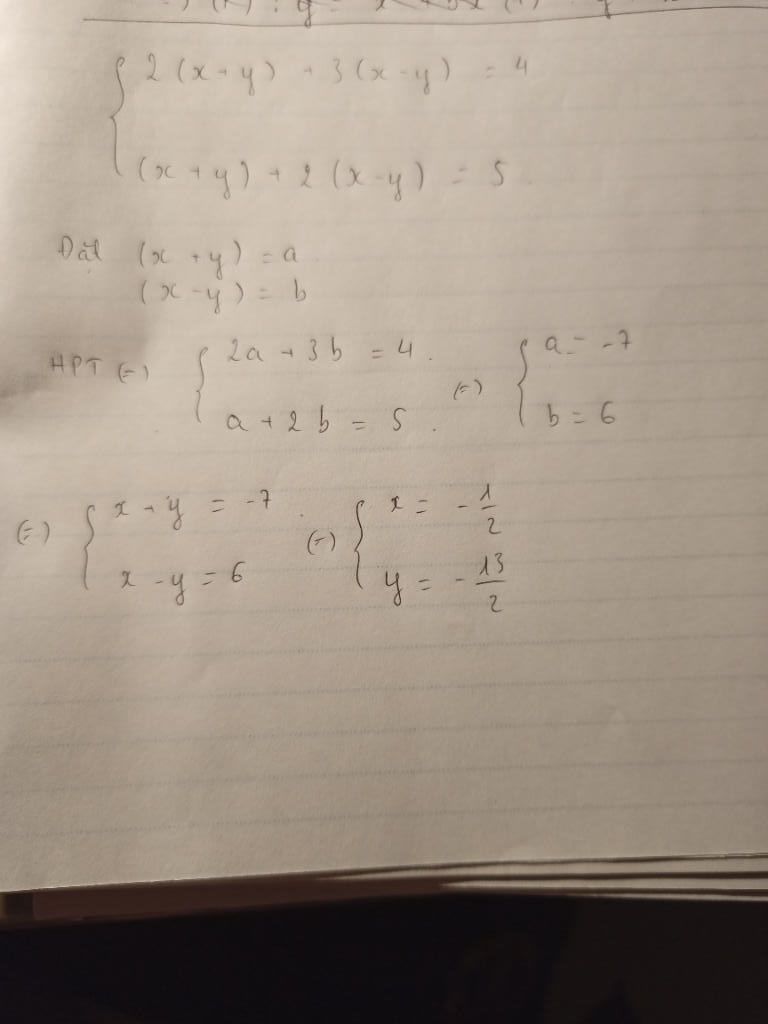 2(x+y) + 3(x-y) = 4
(x+y) + 2(x-y) = 5.
Đặt (x+y) = a
(x-y) = b
HPT (=) { 2a + 3b = 4. (=) { a = -7
a + 2b = 5. b = 6
(=) { x+y = -7. (=) { x = -1/2
x-y = 6 y = -13/2